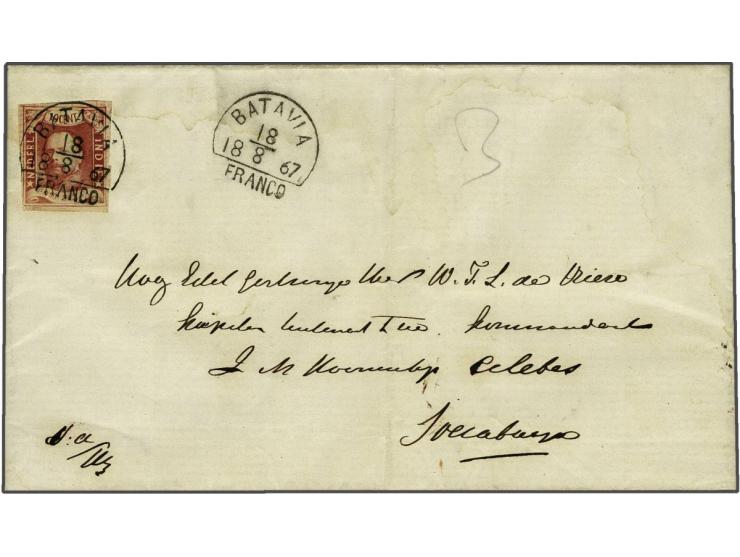 10 CENT
NEDERL. INDIE
BATAVIA
18
8
18 67
FRANCO
BATAVIA
18
8
18 67
FRANCO
3
Hoog Edel Gestrenge Heer W. J. L. de Vriese
Kapitein luitenant Kommandant
Z M Celebes
Soerabaya